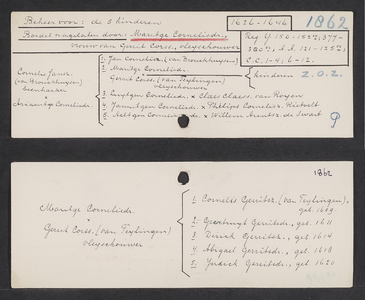 Beheer voor: de 5 kinderen
Boedel nagelaten door: Maritge Cornelisdr.,
vrouw van Gerrit Corss., oleyschouwer
1626-1646
1862
Reg. f. 150-152v, 377-
380v,
C.C. 1-4, 6-12.
kinderen Z.O.Z.
Cornelis Jansz.
(van Bronckhuysen)
×
Ariaantge Cornelisdr.
1. Jan Cornelisz. (van Bronckhuysen)
2. Maritge Cornelisdr.
×
Gerrit Corss. (van Teylingen)
oleyschouwer
3. Cornelisdr. × Claes Claesz. van Royen
4. Jannetgen Cornelisdr. × Philips Cornelisz.
5. Aeltgen Cornelisdr. × Willem Arentsz. de Swart
1862
Maritge Cornelisdr.
×
Gerrit Corss. (van Teylingen)
oleyschouwer
1. Cornelis Gerritsz. (van Teylingen),
geb. 1609
2. Geertruyt Gerritsdr., geb. 1611
3. Dirick Gerritsz., geb. 1614
4. Abigael Gerritsdr., geb. 1618
5. Judick Gerritsdr., geb. 1620